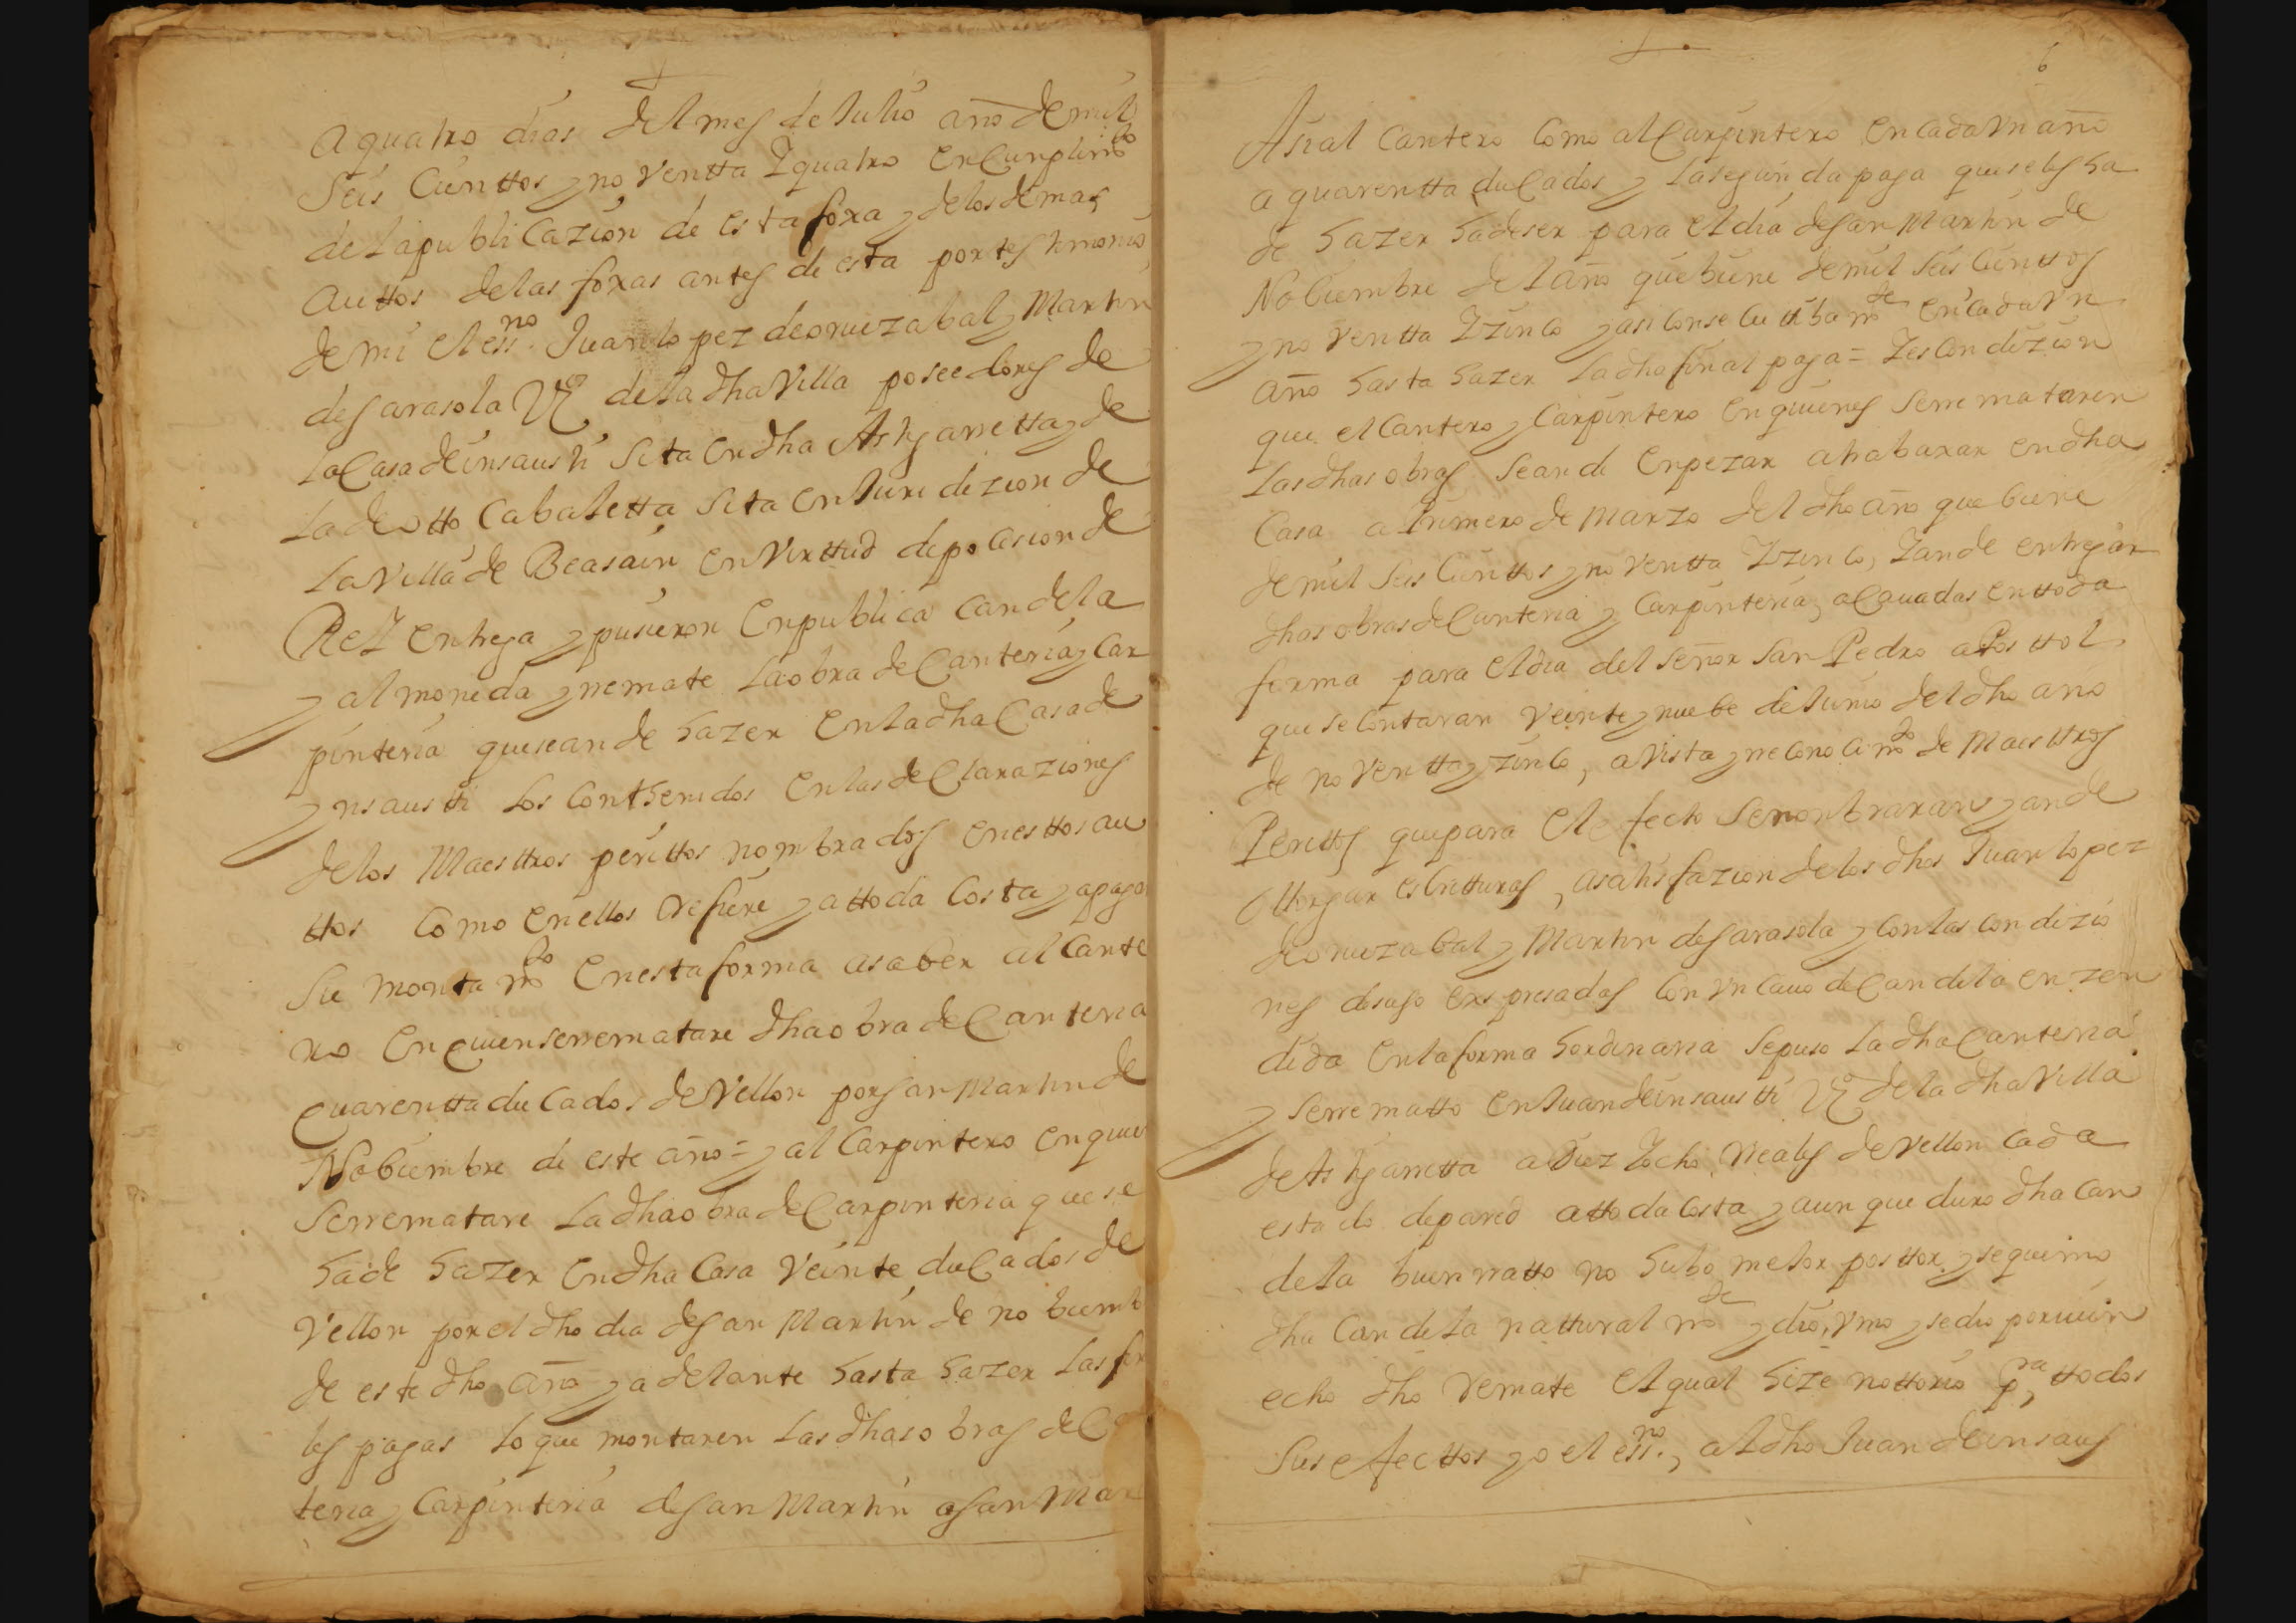 a quatro dias del mes de Julio año de mil
seis cienttos y noventta y quatro en cunplimto
de la publicazion de esta foxa y de los demas
auttos de las foxas antes de esta por testimonio
de mi el essno. Juan lopez de oruezabal y Martin
de sarasola Vos de la dha Villa poseedores de
la Casa de insausti sita en dha Astigarretta y de
la de otto Cabaletta sita en Juridizion de
la Villa de Beasain en Virttud de posesion de
Rel entrega y pusieron en publica candela
y al moneda y rremate la obra de Canteria y Car
pinteria que se an de hazer en la dha Casa de
ynsausti los conthenidos en las declaraziones
de los Maesttros perittos nombrados en esttos au
ttos como en ellos refiere y a ttoda costa y a pagar
su montamto en esta forma a saber al cante
ro en quien se rrematare dha obra de Canteria
quarentta ducados de Vellon por san Martin de
Nobiembre de este año = y al Carpintero en quien
se rrematare la dha obra de Carpinteria que se
ha de hazer en dha Casa Veinte ducados de
Vellon por el dho dia de san Martin de nobiemb
de este dho año y adelante hasta hazer las fin
les pagas lo que montaren las dhas obras de C
teria y Carpinteria de san Martin a san Mar
6
Asi al Cantero como al Carpintero en cada Un año
a quarentta ducados y la segunda paga que se les ha
de hazer ha de ser para el dia de san Martin de
Nobiembre del año que biene de mil seis cienttos
y noventta y zinco y asi consecuttibamte en cada Un
año hasta hazer la dha final paga = y es condizion
que el Cantero y Carpintero en quienes se rremataren
las dhas obras se an de enpezar a trabaxar en dha
Casa a Primero de Marzo del dho año que biene
de mil seis cienttos y noventta y zinco, y an de entregar
dhas obras de Canteria y Carpinteria, acavadas en ttoda
forma para el dia del señor san Pedro apposttol
que se contaran veinte y nuebe de Junio del dho año
de noventta y zinco, a Vista y rreconocimto de Maesttros
Perittos que para el efecto se nonbraran y an de
ottorgar escritturas, a satisfazion de los dhos Juan lopez
de oruezabal y Martin de sarasola y con las condizio
nes de suso expresadas con Un cavo de Candela enzen
dida en la forma hordinaria se puso la dha Canteria
y se rrematto en Juan de insaustti Vo de la dha Villa
de Astigarretta a Diez y ocho rreales de vellon cada
estado de pared a ttoda costa y aunque duro dha can
dela buen rratto no hubo mejor posttor y se quemo
dha Candela natturalmte y dio Umo y se dio por vien
echo dho remate el qual hize nottorio pra ttodos
sus efecttos yo el essno., al dho Juan de insaus